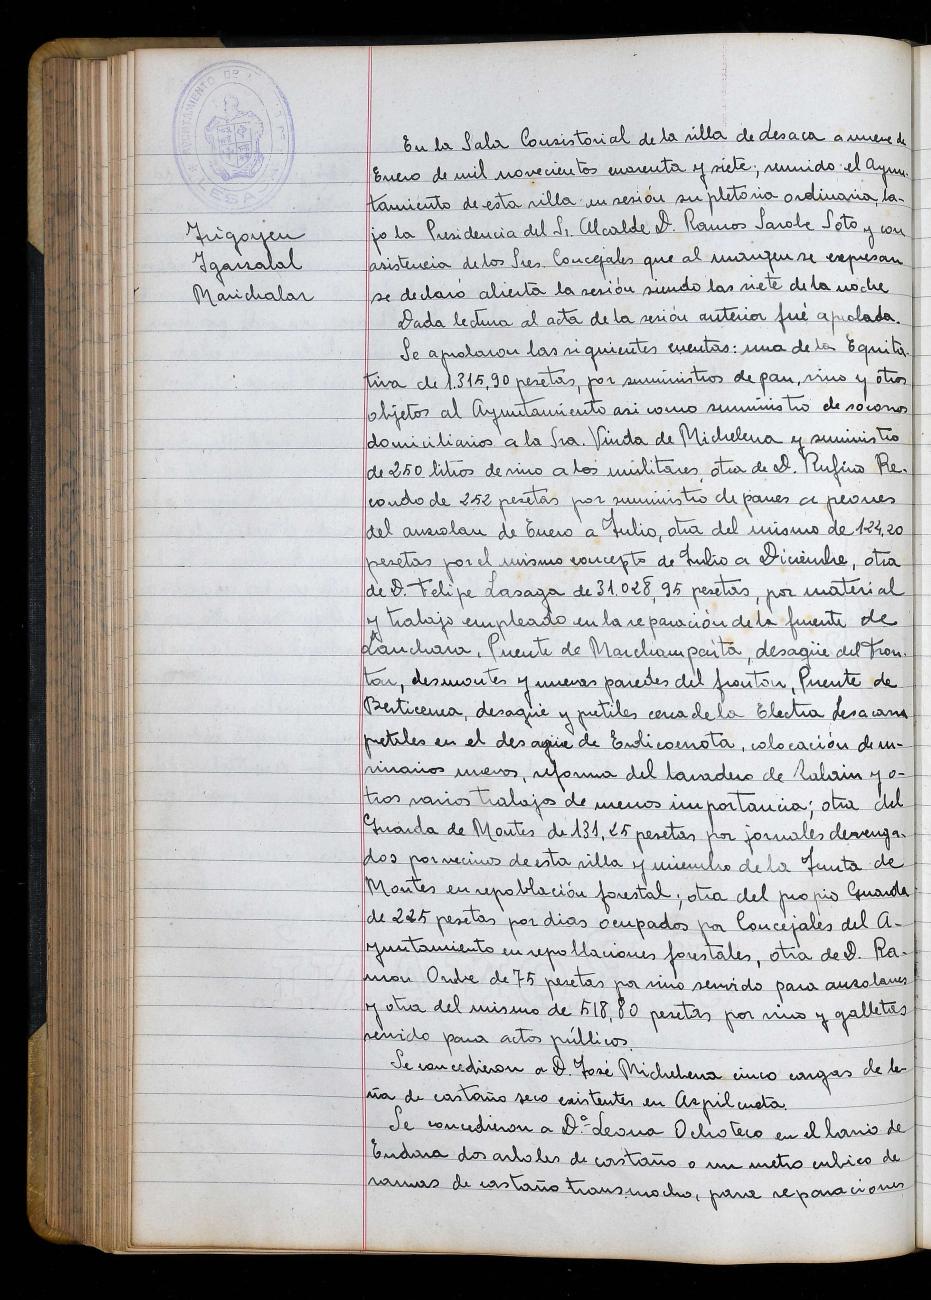 AYUNTAMIENTO DE
LESACA
Irigoyen
Igarzabal
Marichalar
En la Sala Consistorial de la villa de Lesaca a nueve de
Enero de mil novecientos cuarenta y siete, reunido el Ayun-
tamiento de esta villa en sesión supletoria ordinaria, ba-
jo la Presidencia del Sr. Alcalde D. Ramos Sarobe Soto y con
asistencia de los Sres. Concejales que al margen se expresan
se declaró abierta la sesión siendo las siete de la noche
Dada lectura al acta de la sesión anterior fué aprobada.
Se aprobaron las siguientes cuentas: una de la Equita-
tiva de 1.315,90 pesetas, por suministros de pan, vino y otros
objetos al Ayuntamiento asi como suministro de socorros
domiciliarios a la Sra. Viuda de Michelena y suministro
de 250 litros de vino a los militares, otra de D. Rufino Re-
condo de 252 pesetas por suministro de panes a peones
del auzolan de Enero a Julio, otra del mismo de 124,20
pesetas por el mismo concepto de Julio a Diciembre, otra
de D. Felipe Lasaga de 31.028,95 pesetas, por material
y trabajo empleado en la reparación de la fuente de
Lanchara, Puente de desagüe del fron-
ton, desmontes y nuevas paredes del fronton, Puente de
Berticenea, desagüe y pretiles cerca de la Electra Lesacana
pretiles en el desagüe de colocación de u-
rinarios nuevos, reforma del lavadero de y o-
tros varios trabajos de menos importancia; otra del
Guarda de Montes de 131,25 pesetas por jornales devenga-
dos por vecinos de esta villa y miembro de la Junta de
Montes en repoblación forestal; otra del propio Guarda
de 225 pesetas por dias ocupados por Concejales del A-
yuntamiento en repoblaciones forestales, otra de D. Ra-
mon de 75 pesetas por vino servido para auzolanes
y otra del mismo de 518,80 pesetas por vino y galletas
servido para actos públicos.
Se concedieron a D. José Michelena cinco cargas de le-
ña de castaño seco existentes en Azpilcueta.
Se concedieron a Dª Leona Ochoteco en el barrio de
Endara dos arboles de castaño o un metro cubico de
ramas de castaño transmocho, para reparaciones